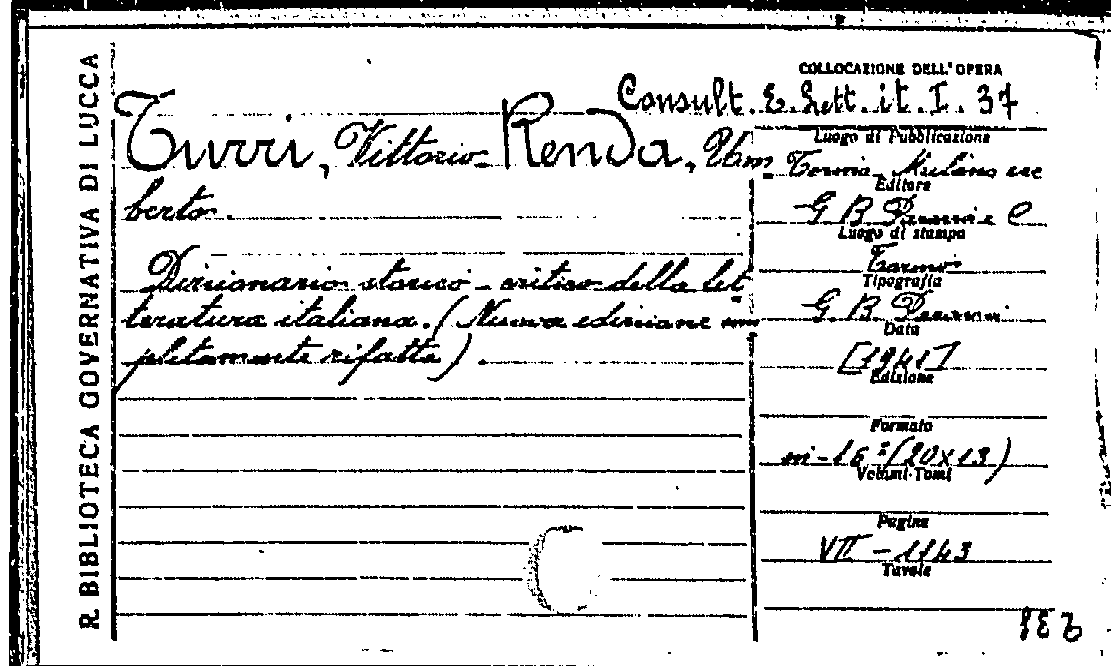 R. BIBLIOTECA GOVERNATIVA DI LUCCA
COLLOCAZIONE DELL'OPERA
Consult. E. Lett. it. I. 37
Turri, Vittorio - Renda, Um-
berto.
Dizionario storico-critico della let-
teratura italiana. (Nuova edizione com-
pletamente rifatta).
Luogo di Pubblicazione
Torino, Milano ecc
Editore
G. B. Paravia e C
Luogo di stampa
Torino
Tipografia
G. B. Paravia
Data
[1941]
Edizione
Formato
in-16° (20x13)
Volumi-Tomi
Pagine
VII - 1143
Tavole